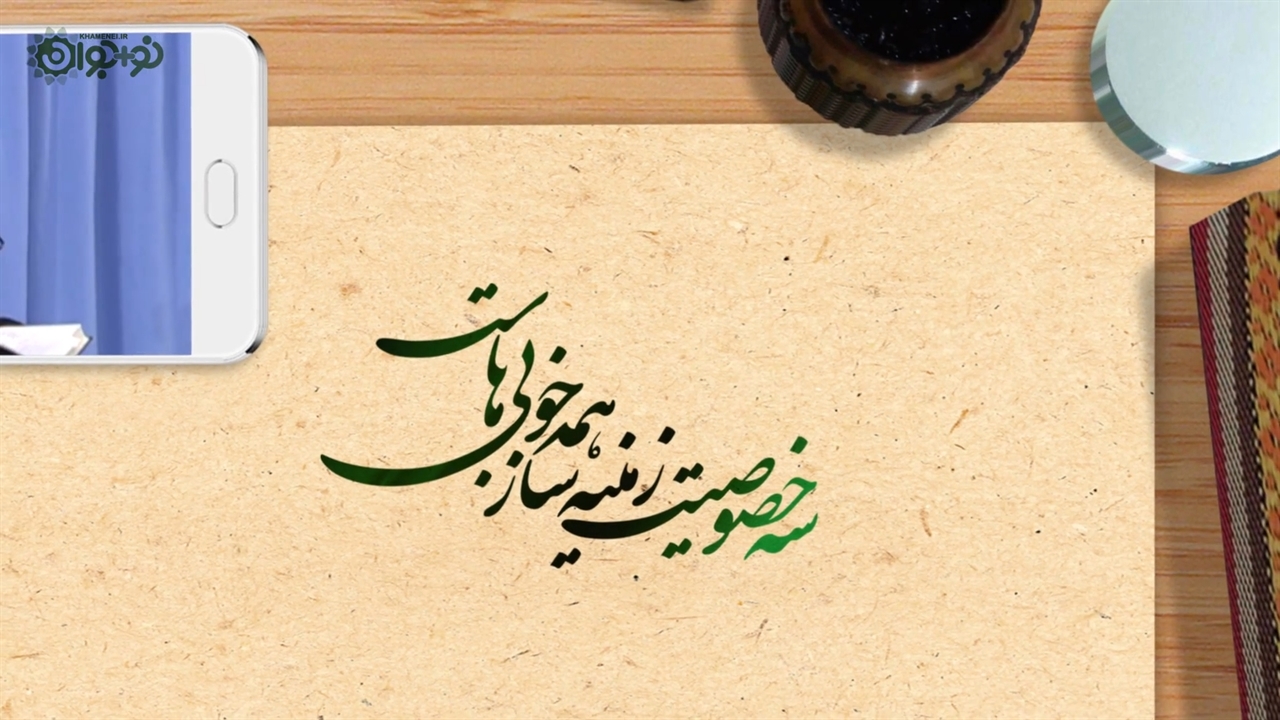 KHAMENEI.IR
نو+جوان
سه خصوصیت زمینه ساز
همه خوبی هاست